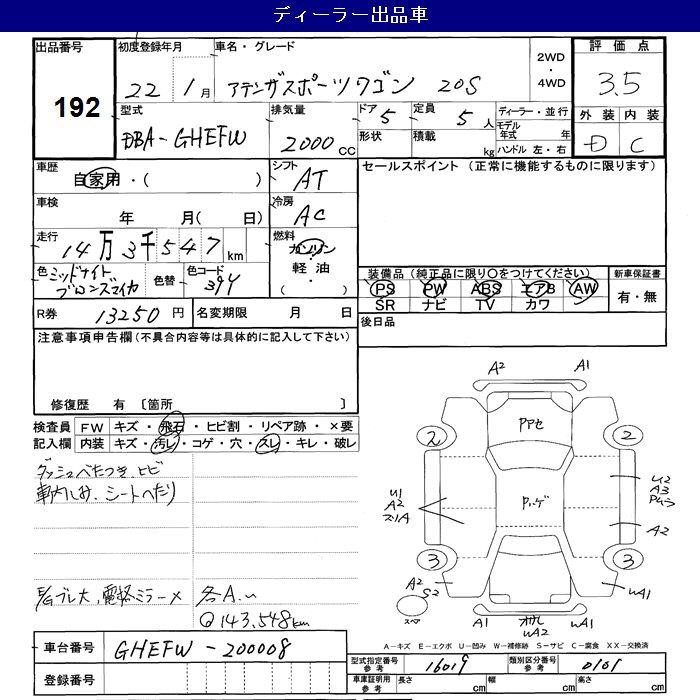 ディーラー出品車
出品番号 初度登録年月 車名・グレード 2WD 4WD 評価点
192 22 1月 アテンザスポーツワゴン 20S 3.5
型式 排気量 ドア 5 定員 5人 ディーラー・並行 外装 内装
DBA-GHEFW 2000cc 形状 積載 kg モデル年式 年 ハンドル 左・右 D C
車歴 シフト セールスポイント (正常に機能するものに限ります)
自家用・( ) AT
車検 冷房
年 月( 日) AC
走行 燃料
14万3千547km ガソリン
軽油
( ・ )
色 ミッドナイトブロンズマイカ 色替 色コード 394
装備品 (純正品に限り○をつけてください) 新車保証書
PS PW ABS エアB AW 有・無
SR ナビ TV カワ
R券 13250円 名変期限 月 日 後日品
注意事項申告欄 (不具合内容等は具体的に記入して下さい)
修復歴 有 〔箇所 〕
検査員 FW キズ・飛石・ヒビ割・リペア跡・×要
記入欄 内装 キズ・汚レ・コゲ・穴・スレ・キレ・破レ
ダッシュべたつき、ヒビ
車内しみ、シートへたり
各A
143,548km
A2 A1
Pアセ
2 2
U1
A2
U2
A3
A2
3 3
A2
S2
uA1
スペア
A1 uA2 uA1
A-キズ E-エクボ U-凹み W-補修跡 S-サビ C-腐食 XX-交換済
車台番号 GHEFW-200008
型式指定番号 参考 16019 類別区分番号 参考 0101
登録番号
車庫証明用 参考 長さ cm 幅 cm 高さ cm